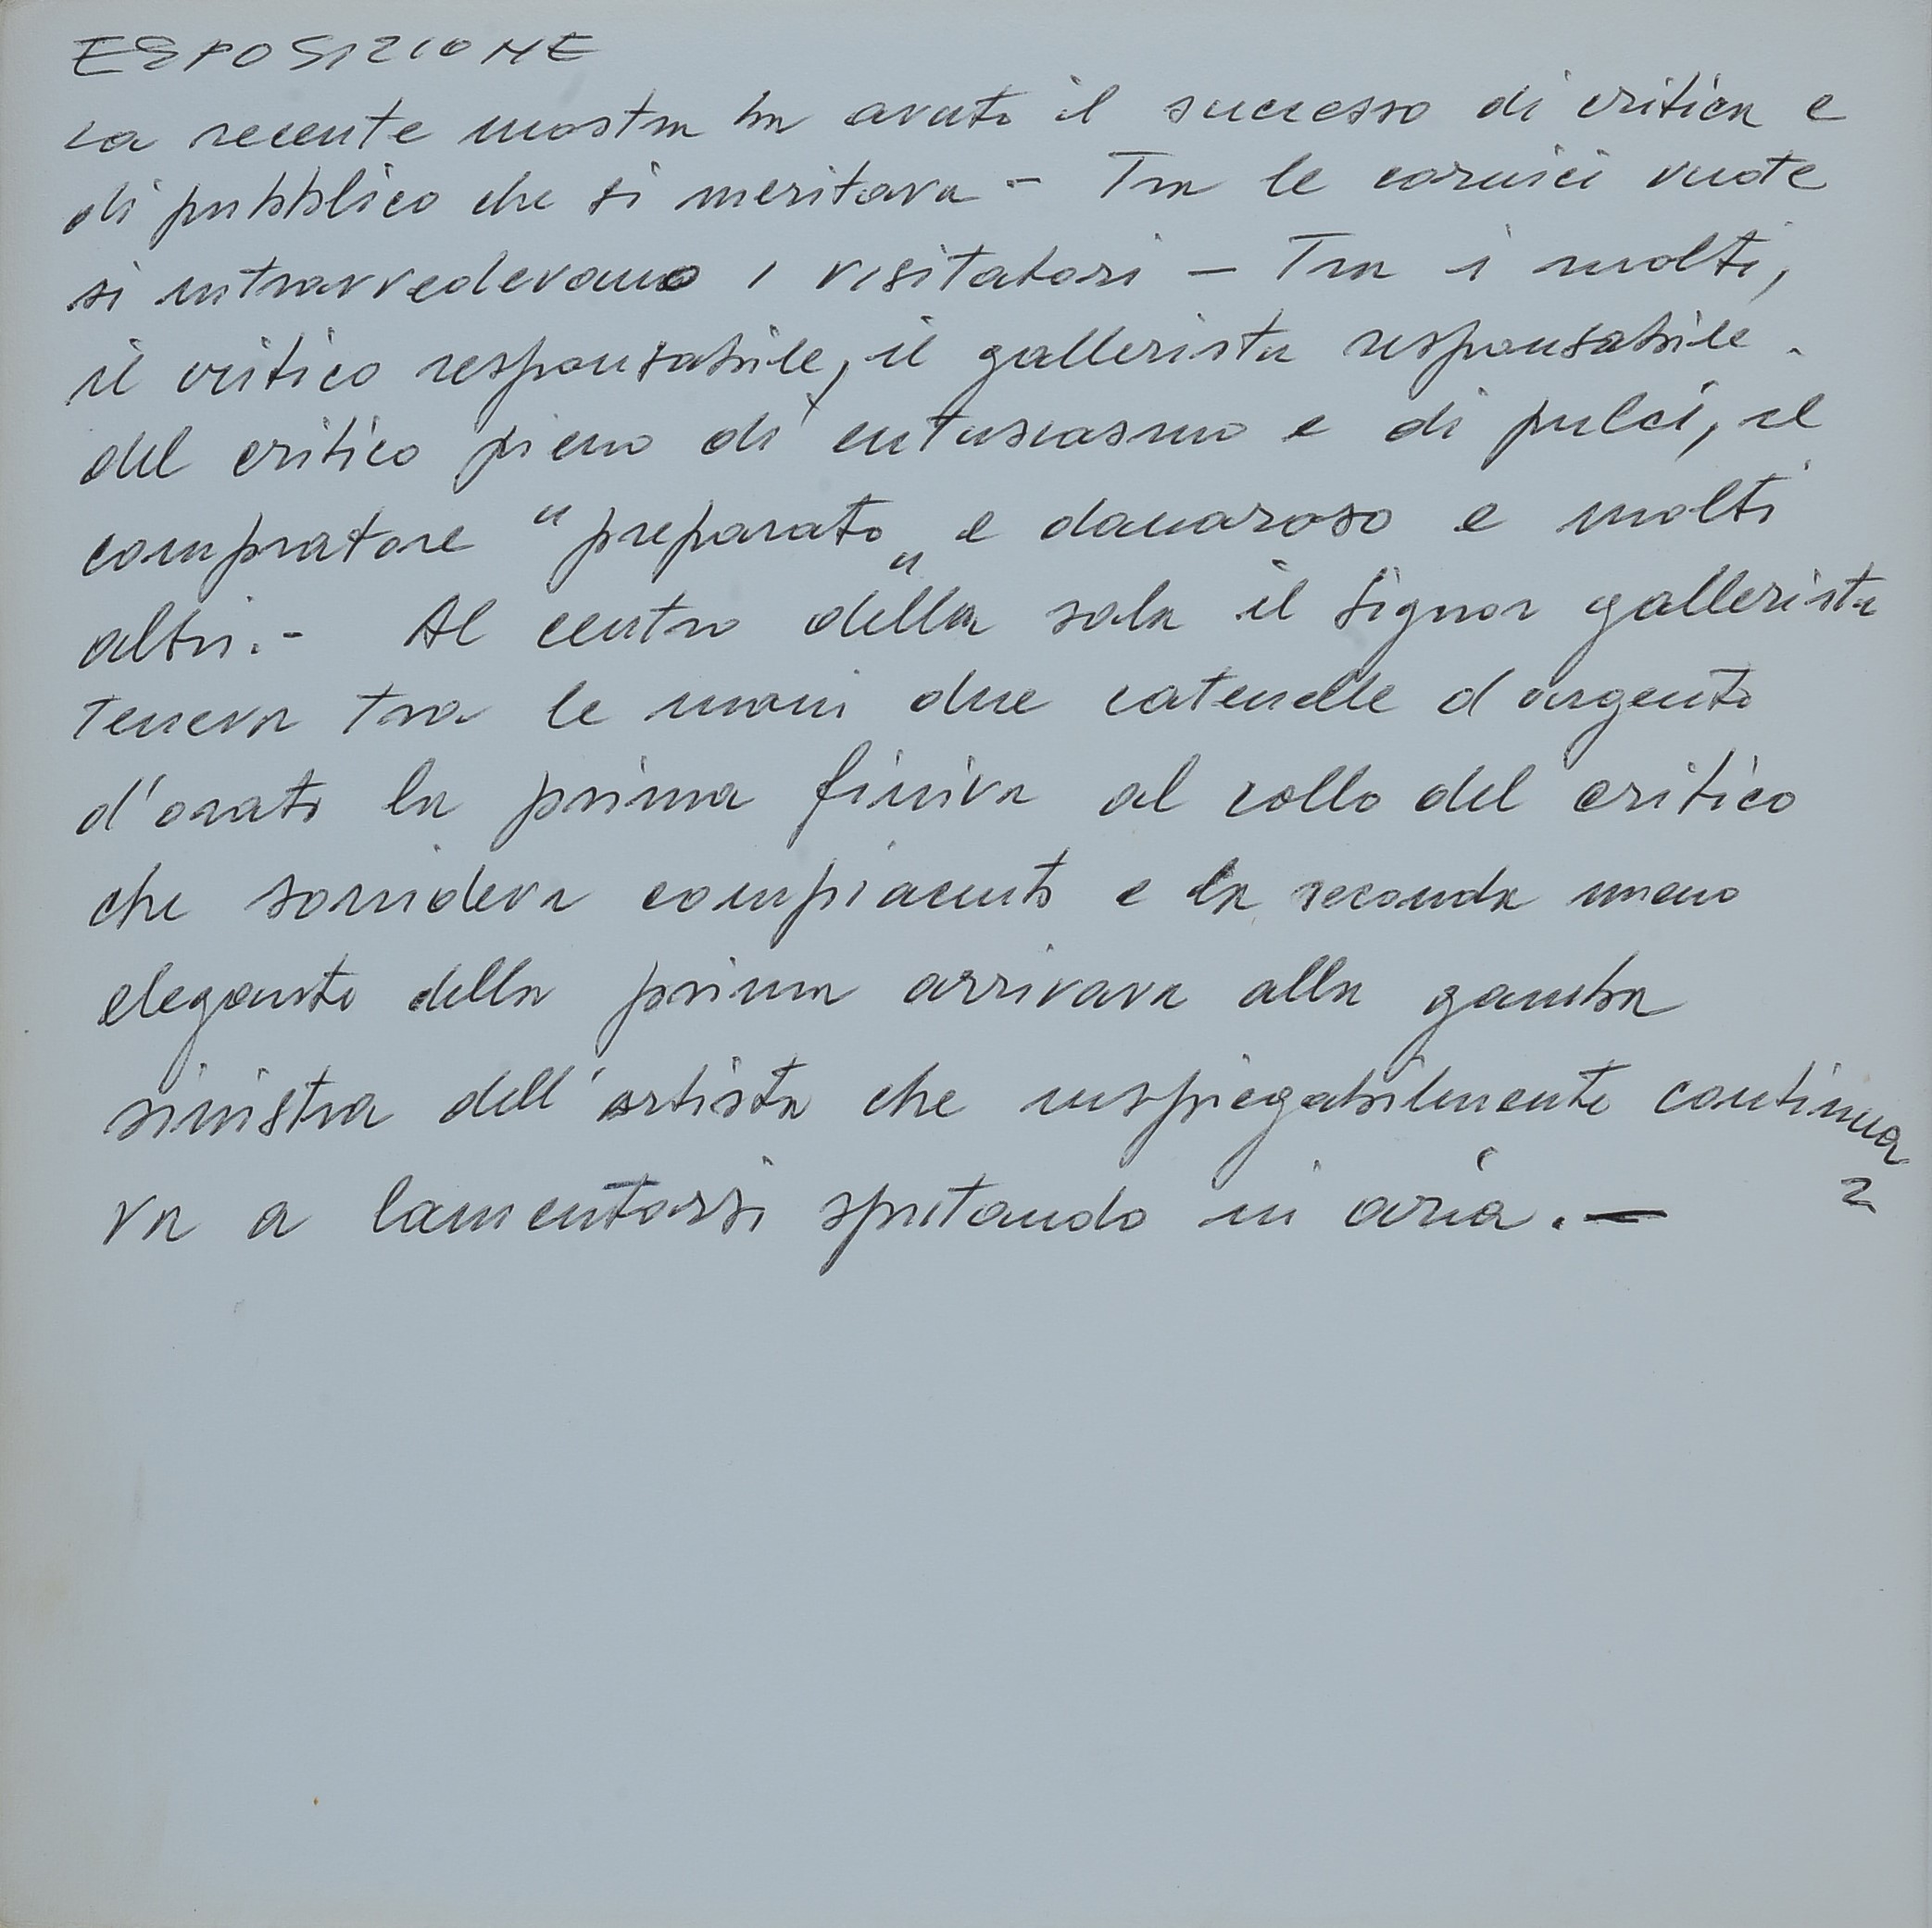 ESPOSIZIONE
La recente mostra ha avuto il successo di critica e
di pubblico che si meritava - Tra le cornici vuote
si intravvedevano i visitatori - Tra i molti,
il critico responsabile, il gallerista responsabile
del critico pieno di entusiasmo e di pulci, il
compratore "preparato" e danaroso e molti
altri.- Al centro della sala il signor gallerista
teneva tra le mani due catenelle d argento
d'orato la prima finiva al collo del critico
che sorrideva compiaciuto e la seconda meno
elegante della prima arrivava alla gamba
sinistra dell'artista che inspiegabilmente continua
=
va a lamentarsi sputando in aria.-